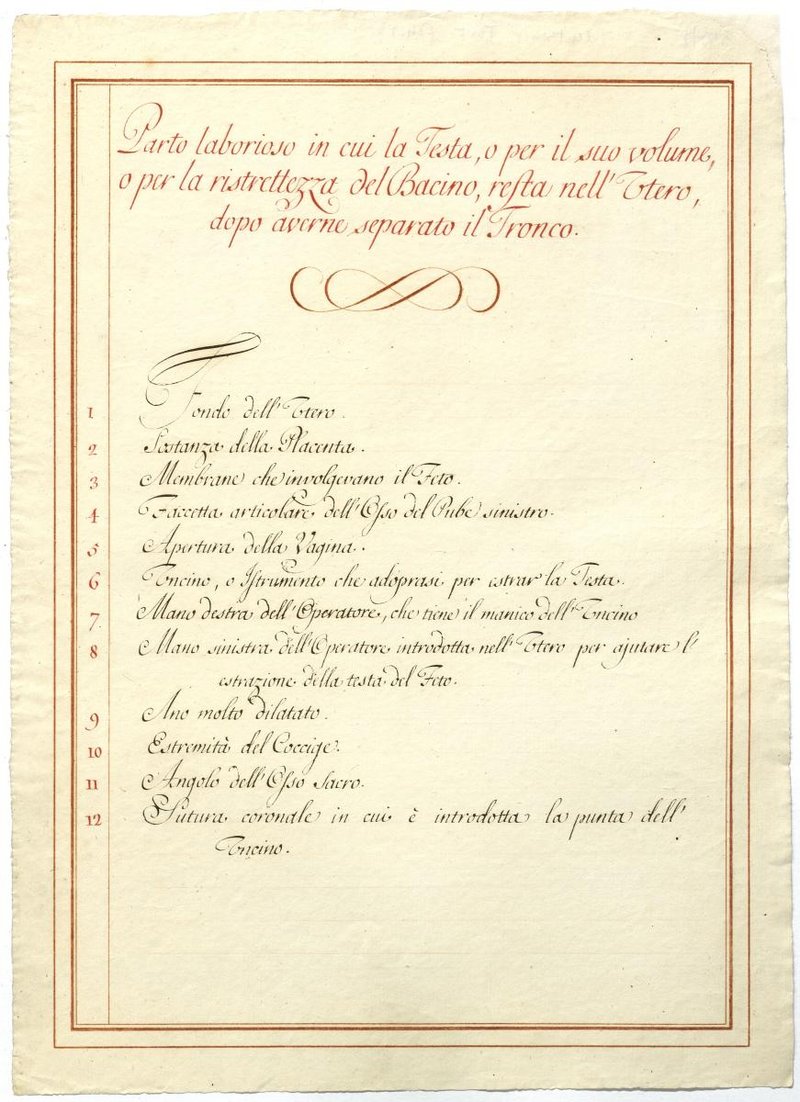 Parto laborioso in cui la Testa, o per il suo volume,
o per la ristrettezza del Bacino, resta nell' Utero,
dopo averne separato il Tronco.
1 Fondo dell' Utero.
2 Sostanza della Placenta.
3 Membrane che involgevano il Feto.
4 Faccetta articolare dell' Osso del Pube sinistro.
5 Apertura della Vagina.
6 Uncino, o Istrumento che adoprasi per estrar la Testa.
7. Mano destra dell' Operatore, che tiene il manico dell' Uncino
8 Mano sinistra dell' Operatore introdotta nell' Utero per ajutare l'
estrazione della testa del Feto.
9 Ano molto dilatato.
10 Estremità del Coccige.
11 Angolo dell' Osso Sacro.
12 Sutura coronale in cui è introdotta la punta dell'
Uncino.